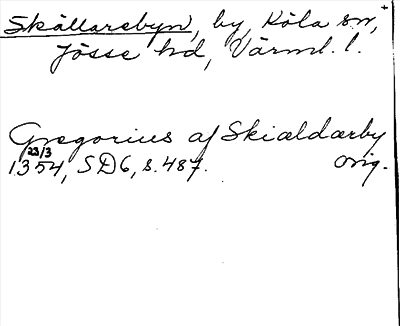 Skållarebyn, by, Köla sn, +
Jösse hd, Värml. l.
Gregorius af Skiældærby
23/3
1354, SD6, s. 487. orig.